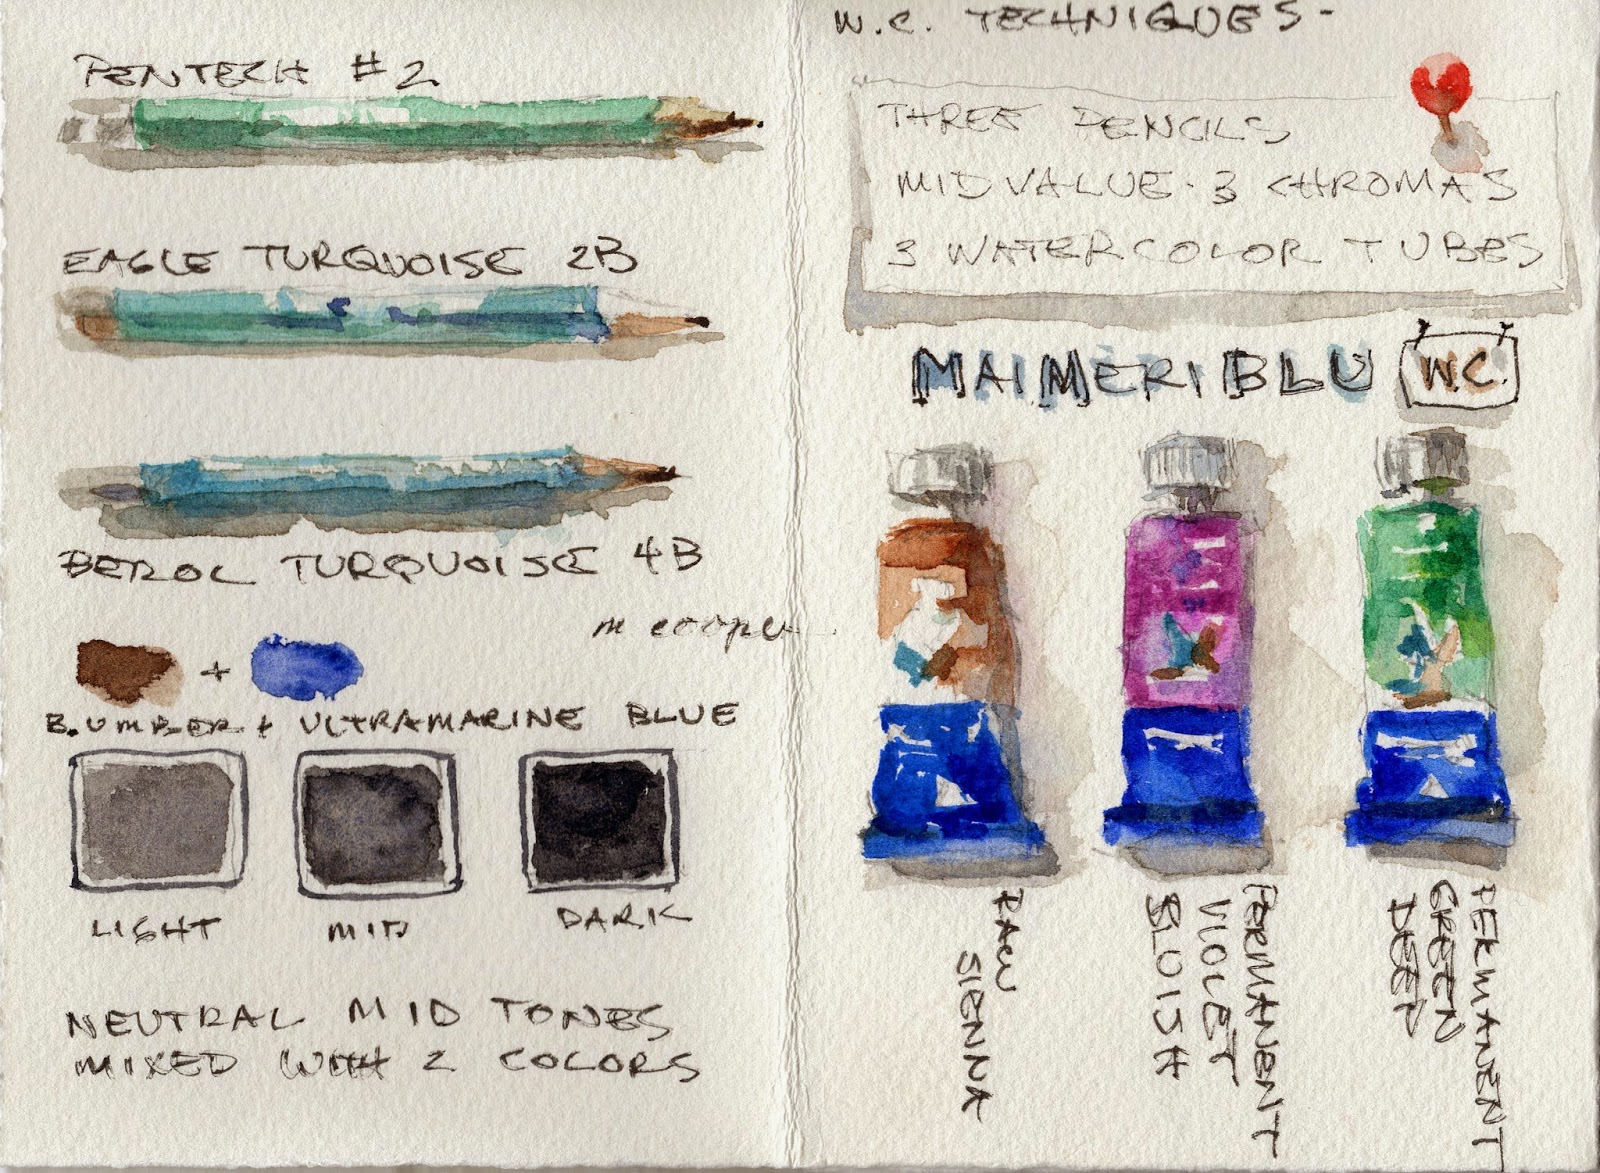 PENTECH #2
EAGLE TURQUOISE 2B
BEROL TURQUOISE 4B
m cooper
+
B. UMBER + ULTRAMARINE BLUE
LIGHT
MID
DARK
NEUTRAL MID TONES
MIXED WITH 2 COLORS
W.C. TECHNIQUES-
THREE PENCILS
MIDVALUE - 3 CHROMAS
3 WATERCOLOR TUBES
MAIMERI BLU W.C.
RAW
SIENNA
PERMANENT
VIOLET
BLUISH
PERMANENT
GREEN
DEEP